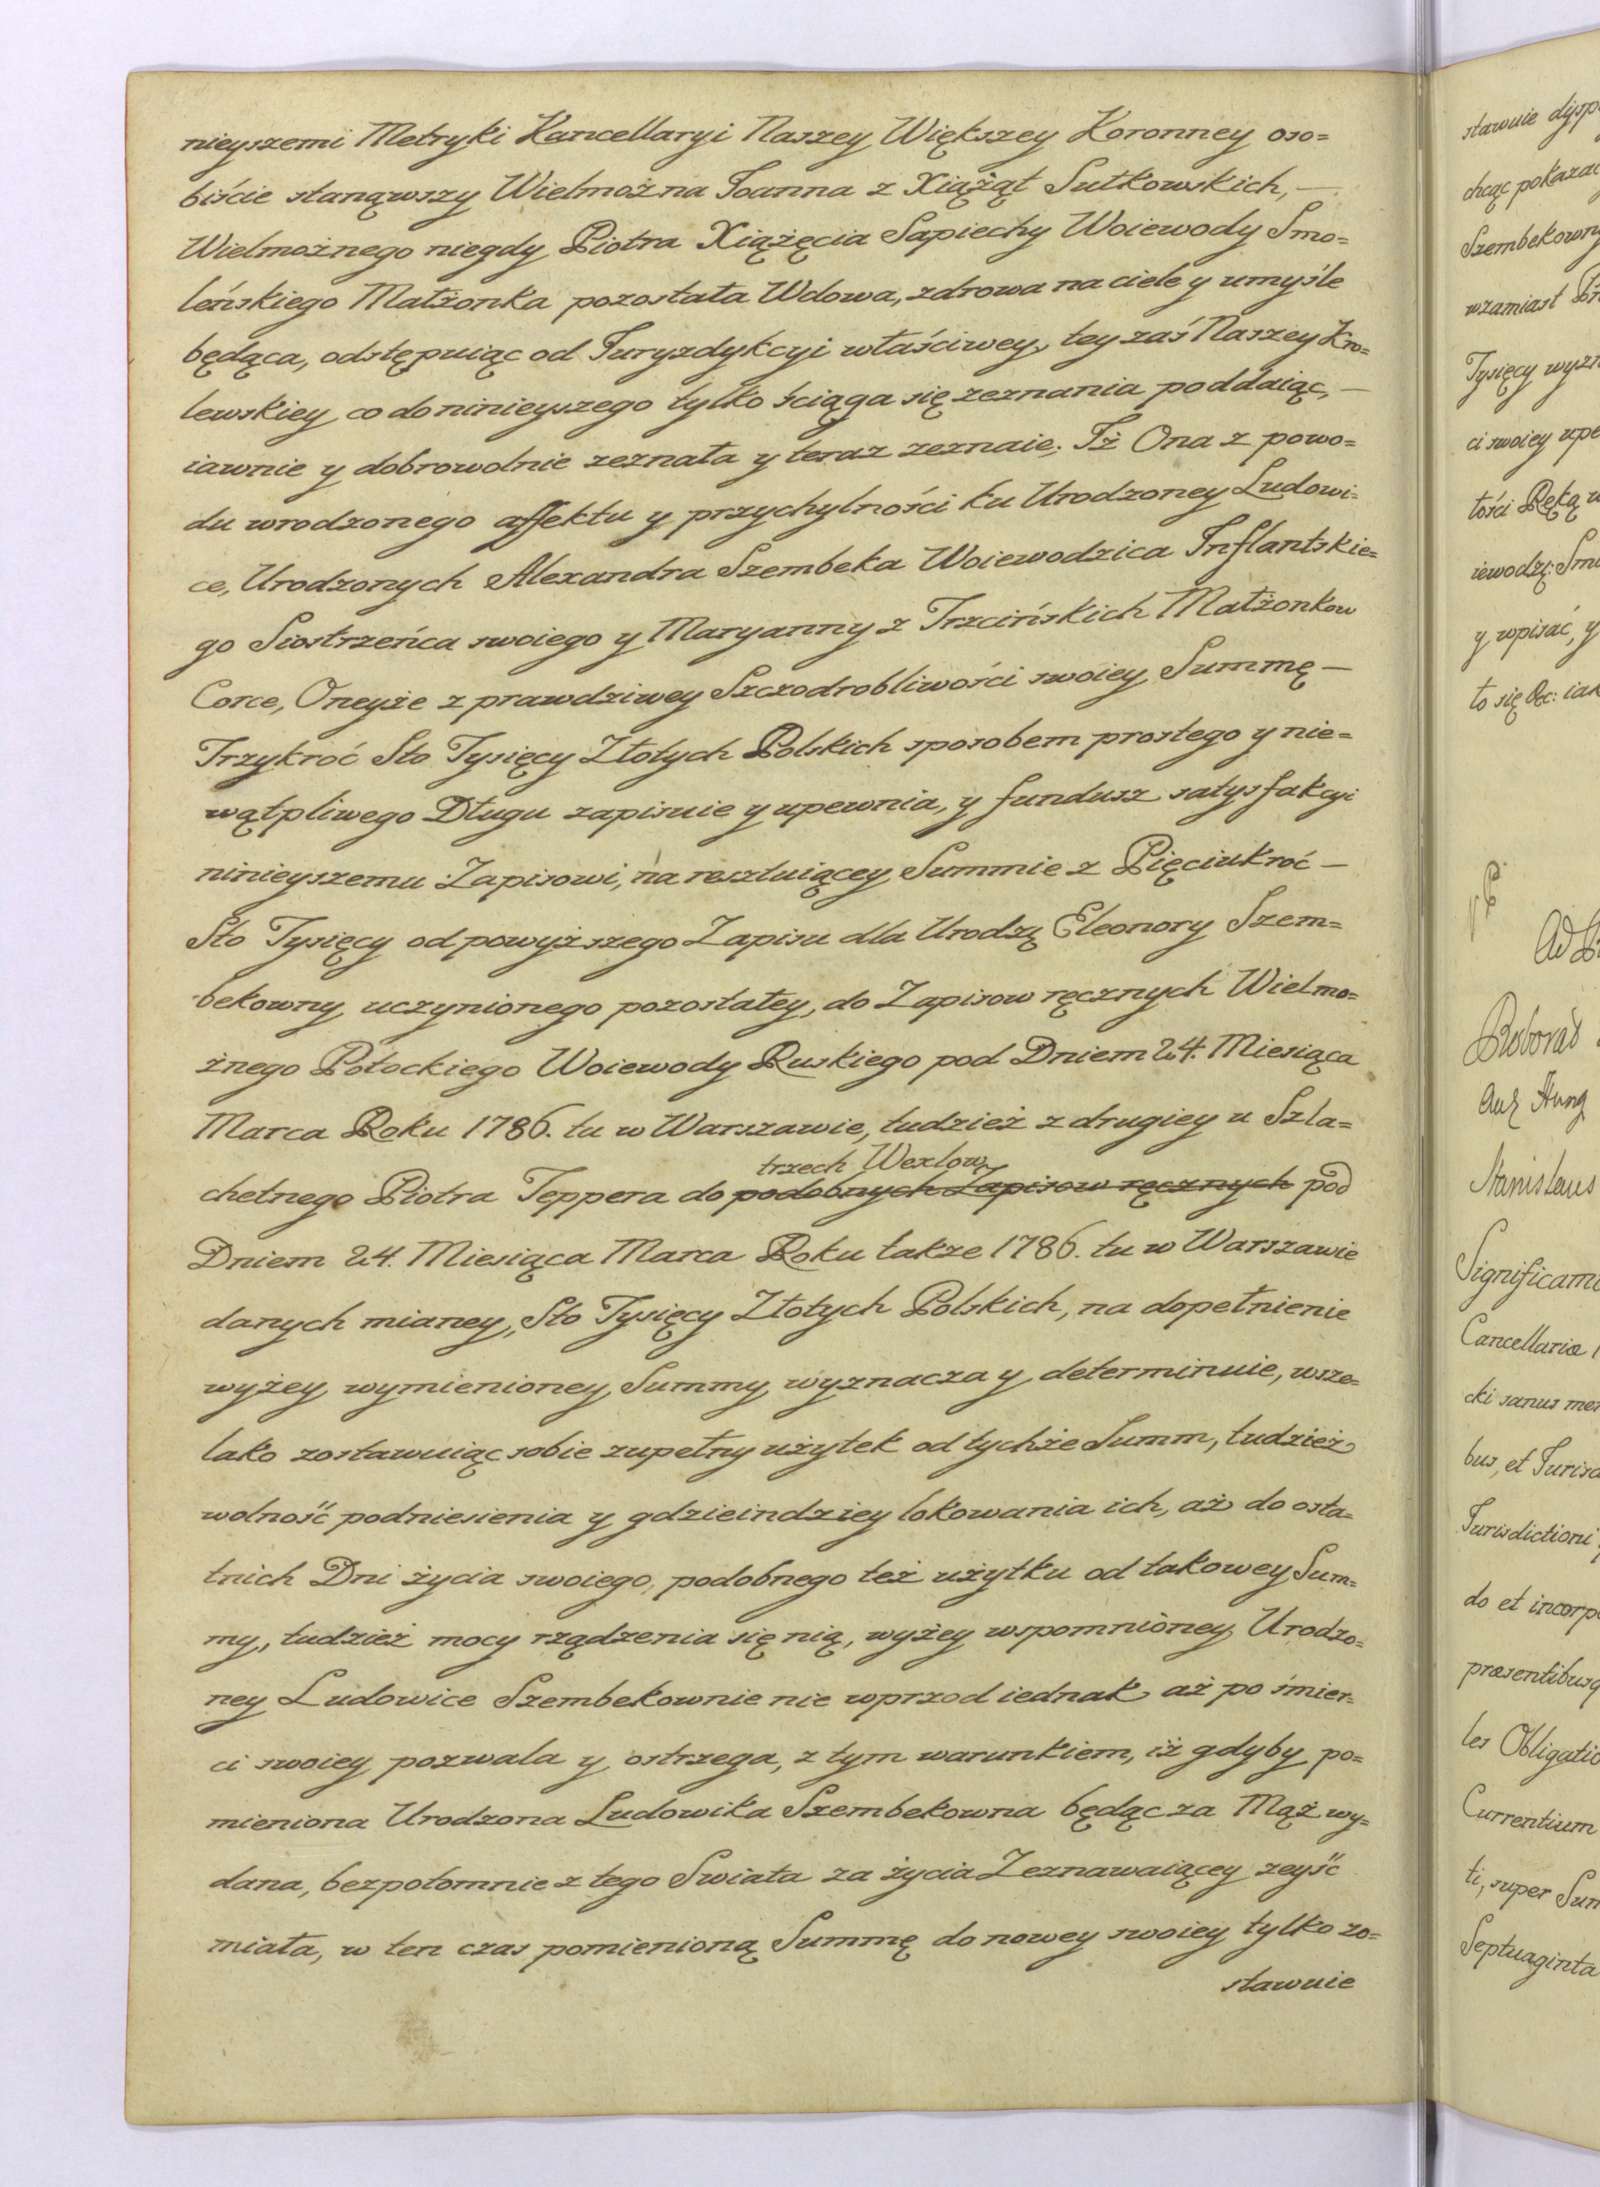 nieyszemi Metryki Kancellaryi Naszey Większey Koronney oso=
biście stanąwszy Wielmożna Joanna z Xiążąt Sułkowskich, —
Wielmożnego niegdy Piotra Xiążęcia Sapiechy Woiewody Smo=
leńskiego Małżonka pozostała Wdowa, zdrowa na ciele y umyśle
będąca, odstępuiąc od Juryzdykcyi właściwey, tey zaś Naszey Kro=
lewskiey co do ninieyszego tylko ściąga się zeznania poddaiąc, —
iawnie y dobrowolnie zeznała y teraz zeznaie; Iż Ona z powo=
du wrodzonego affektu y przychylności ku Urodzoney Ludowi=
ce, Urodzonych Alexandra Szembeka Woiewodzica Inflantskie=
go Siostrzeńca swoiego y Maryanny z Trzcińskich Małżonkow
Corce, Oneyże z prawdziwey Szczodrobliwości swoiey Summę —
Trzykroć Sto Tysięcy Złotych Polskich sposobem prostego y nie=
wątpliwego Długu zapisuie y upewnia, y fundusz satysfakcyi
ninieyszemu Zapisowi, na resztuiącey Summie z Pięciukroć —
Sto Tysięcy od powyższego Zapisu dla Urodzę Eleonory Szem=
bekowny uczynionego pozostałey, do Zapisow ręcznych Wielmo=
żnego Potockiego Woiewody Ruskiego pod Dniem 24. Miesiąca
Marca Roku 1786. tu w Warszawie, tudzież z drugiey u Szla=
trzech Wexlow
chetnego Piotra Teppera do podobnych Zapisow ręcznych pod
Dniem 24. Miesiąca Marca Roku także 1786. tu w Warszawie
danych mianey, Sto Tysięcy Złotych Polskich, na dopełnienie
wyżey wymienioney Summy wyznacza y determinuie, wsze=
lako zostawuiąc sobie zupełny użytek od tychże Summ, tudzież
wolność podniesienia y gdzieindziey lokowania ich, aż do osta=
tnich Dni życia swoiego, podobnego też użytku od takowey Sum=
my, tudzież mocy rządzenia się nią, wyżey wspomnioney Urodzo=
ney Ludowice Szembekownie nie wprzod iednak aż po śmier=
ci swoiey pozwala y ostrzega, z tym warunkiem, iż gdyby po=
mieniona Urodzona Ludowika Szembekowna będąc za Mąż wy=
dana, bezpotomnie z tego Swiata za życia Zeznawaiącey zeyść
miała, w ten czas pomienioną Summę do nowey swoiey tylko zo=
stawuie
stawuie dysp
chcąc pokazać
Szembekowny
wzamiast
Tysięcy wyz
ci swoiey upe
tości Ręką w
iewodzę: Smo
y wpisać, y
to się &c: iak
Roborat
Stanislaus
Significam
Cancellariæ
cki sanus me
bus, et Juris
Jurisdictioni
do et incorp
præsentibusq
les Obligatio
Currentium
ti, super Sum
Septuaginta